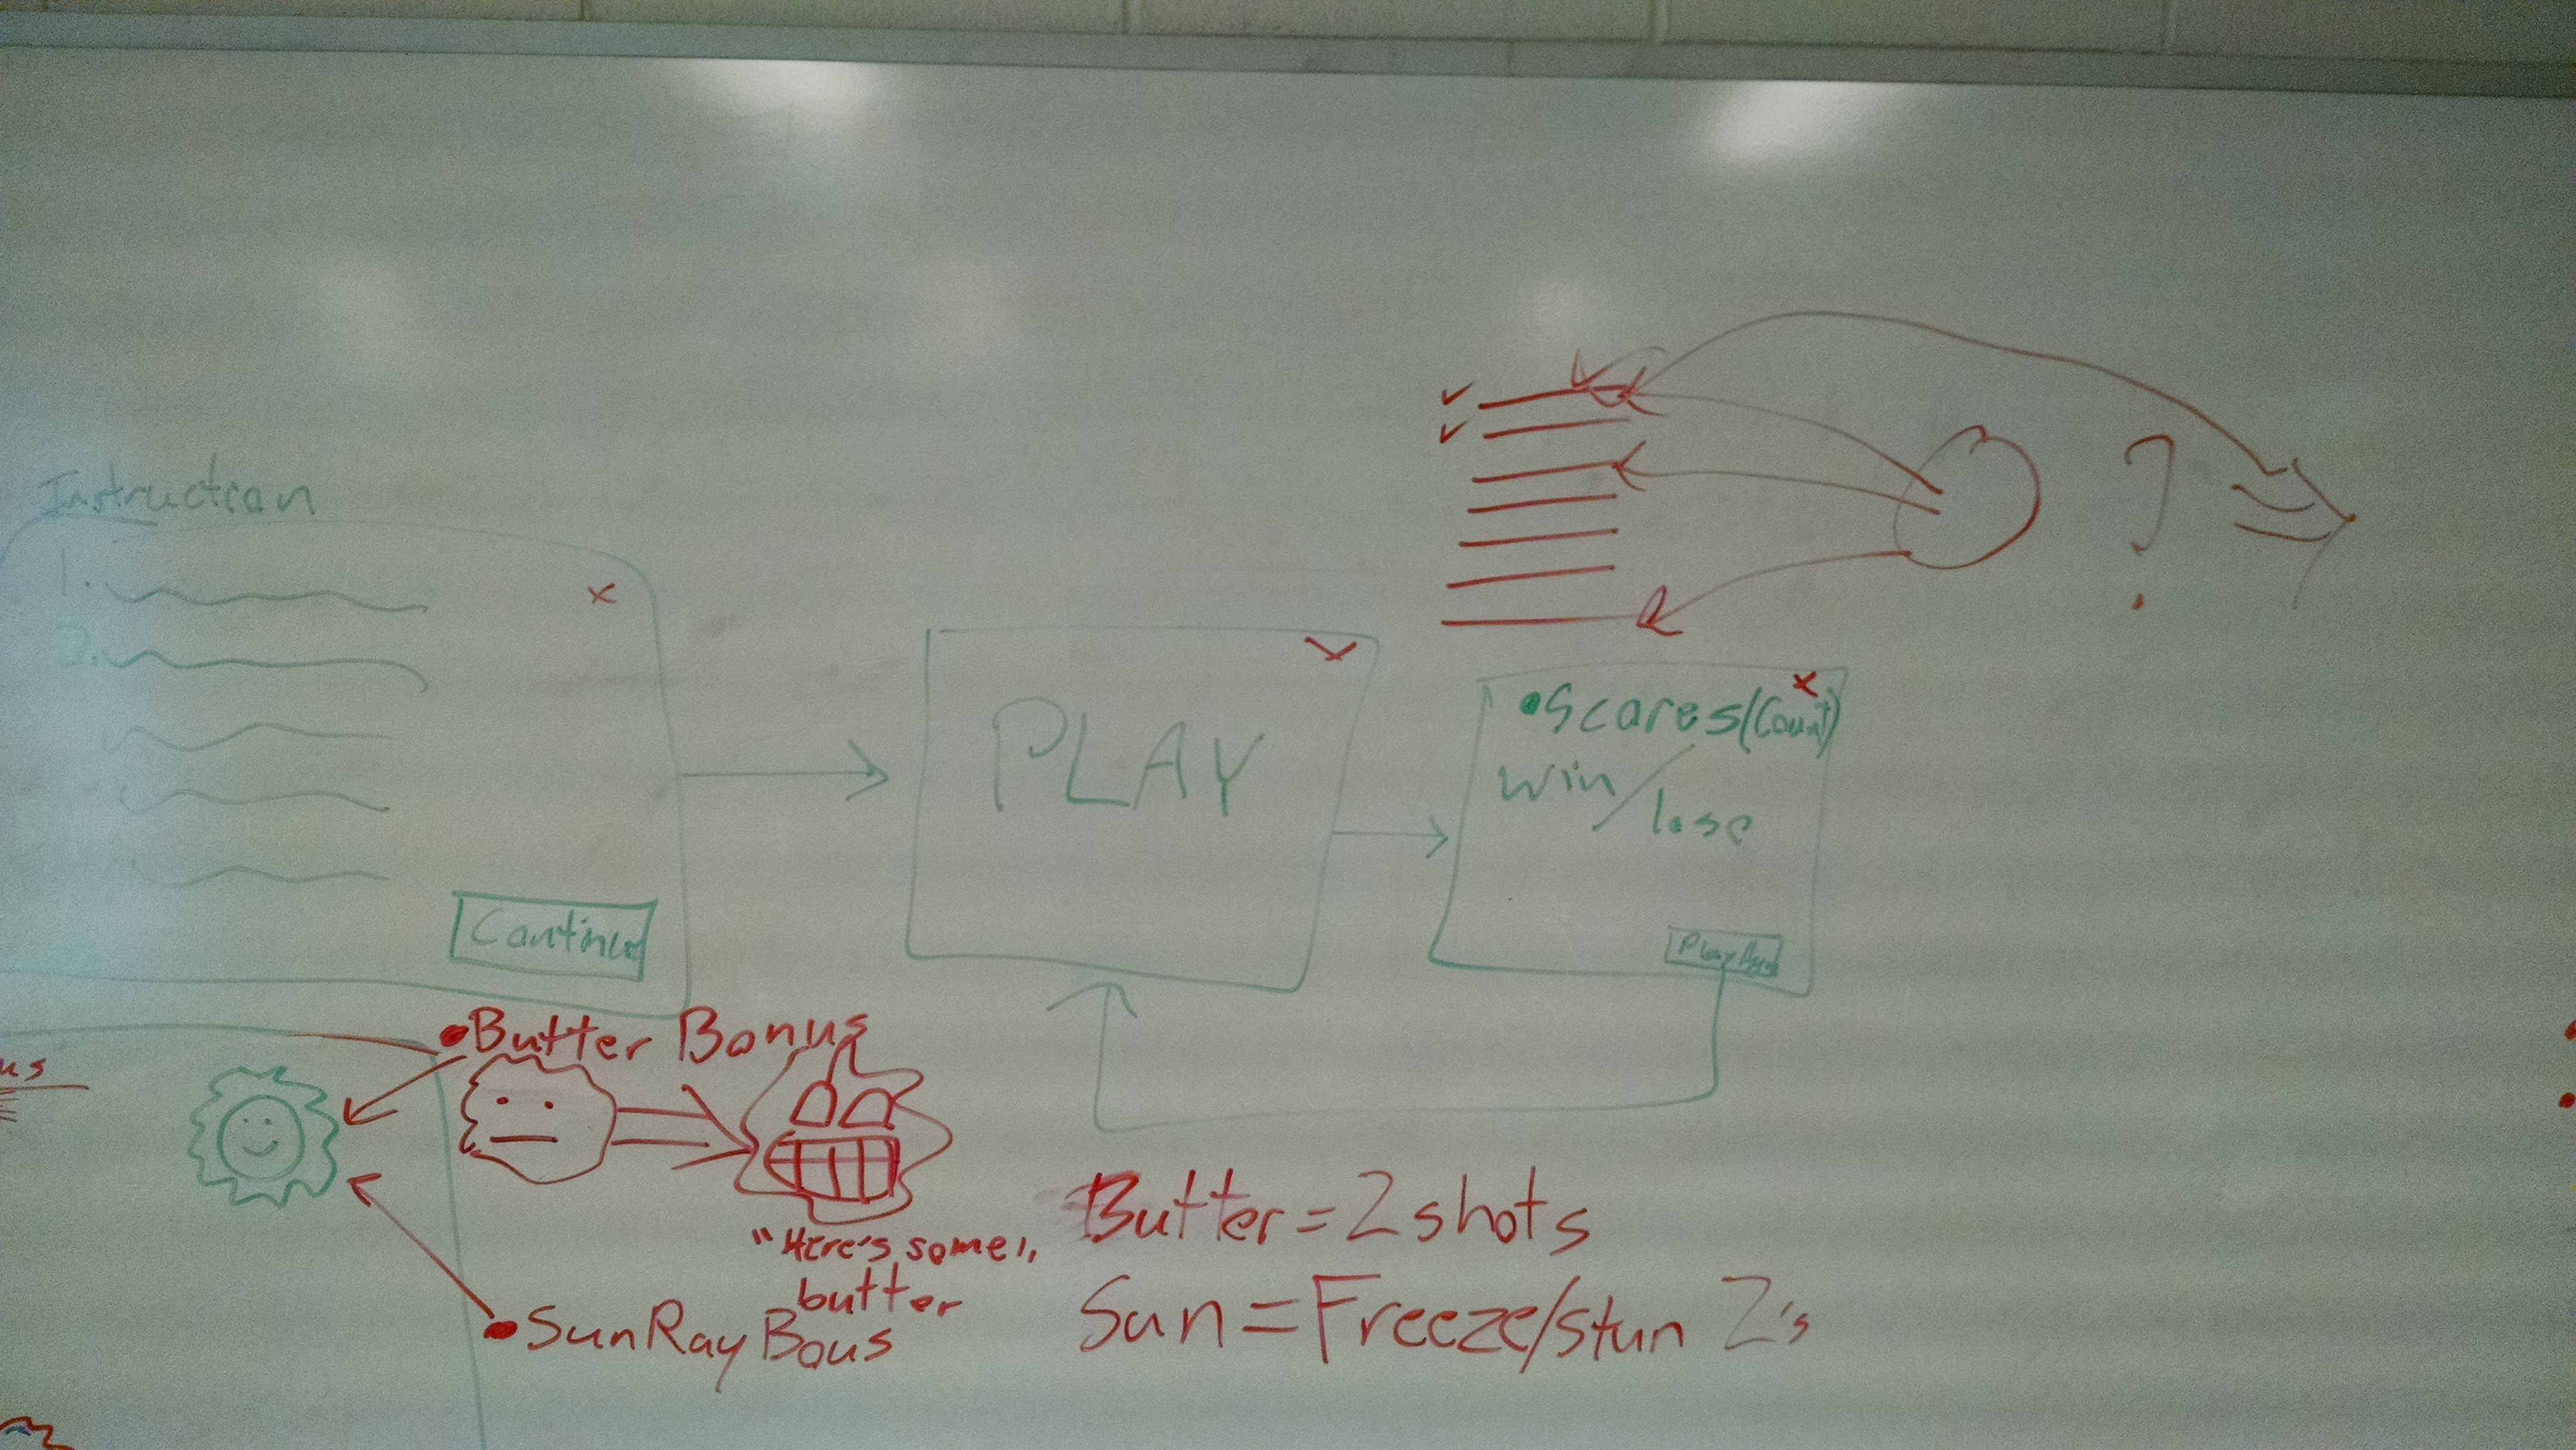 Instruction
1.
2.
Continue
PLAY
?
•Scores(Count)
win/lose
Play Again
us
•Butter Bonus
"Here's some"
butter
•SunRay Bous
Butter=2shots
Sun=Freeze/stun Z's